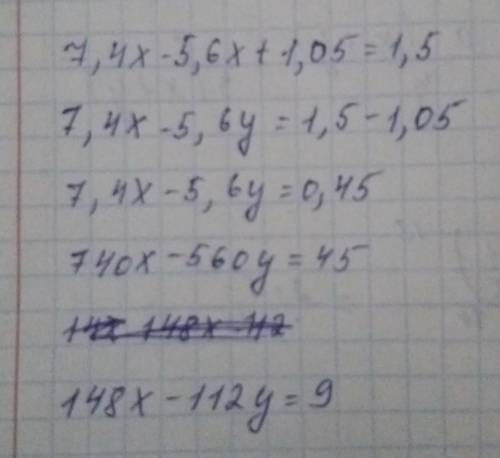 7,4x-5,6x+1,05=1,5
7,4x-5,6y=1,5-1,05
7,4x-5,6y=0,45
740x-560y=45
148x-112y=9